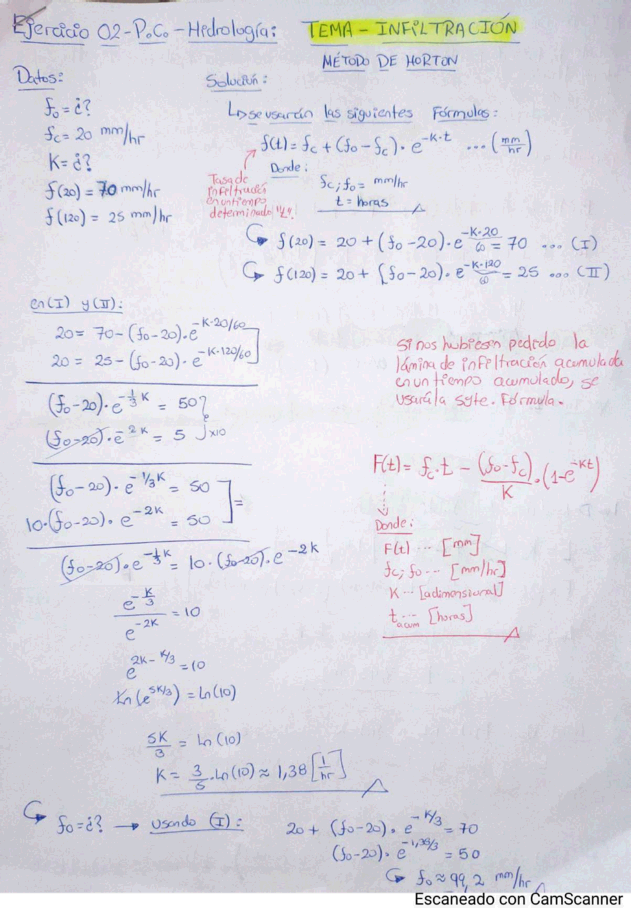 Ejercicio 02-P.C.-Hidrología: TEMA - INFILTRACIÓN
MÉTODO DE HORTON
Datos:
f₀ = ¿?
fc = 20 mm/hr
K = ¿?
f(20) = 70 mm/hr
f(120) = 25 mm/hr
Solución:
↳ se usarán las siguientes Fórmulas:
f(t) = fc + (f₀ - fc) · e^(-K·t) ... (mm/hr)
Tasa de
infiltración
en un tiempo
determinado "t".
Donde:
fc; f₀ = mm/hr
t = horas
f(20) = 20 + (f₀ - 20) · e^(-K·20/60) = 70 ... (I)
f(120) = 20 + (f₀ - 20) · e^(-K·120/60) = 25 ... (II)
en (I) y (II):
20 = 70 - (f₀ - 20) · e^(-K·20/60)
20 = 25 - (f₀ - 20) · e^(-K·120/60)
(f₀ - 20) · e^(-1/3 K) = 50
(f₀ - 20) · e^(-2K) = 5 } x10
(f₀ - 20) · e^(-1/3 K) = 50
10 · (f₀ - 20) · e^(-2K) = 50 ] =
(f₀ - 20) · e^(-1/3 K) = 10 · (f₀ - 20) · e^(-2K)
e^(-K/3) / e^(-2K) = 10
e^(2K - K/3) = 10
Ln(e^(5K/3)) = Ln(10)
5K/3 = Ln(10)
K = 3/5 · Ln(10) ≈ 1,38 [1/hr]
si nos hubiesen pedido la
lámina de infiltración acumulada
en un tiempo acumulado, se
usará la sgte. Fórmula.
F(t) = fc · t - (f₀ - fc)/K · (1 - e^(-Kt))
Donde:
F(t) ... [mm]
fc; f₀ ... [mm/hr]
K ... [adimensional]
t acum ... [horas]
f₀ = ¿? → usando (I):
20 + (f₀ - 20) · e^(-K/3) = 70
(f₀ - 20) · e^(-1,38/3) = 50
f₀ ≈ 99,2 mm/hr
Escaneado con CamScanner